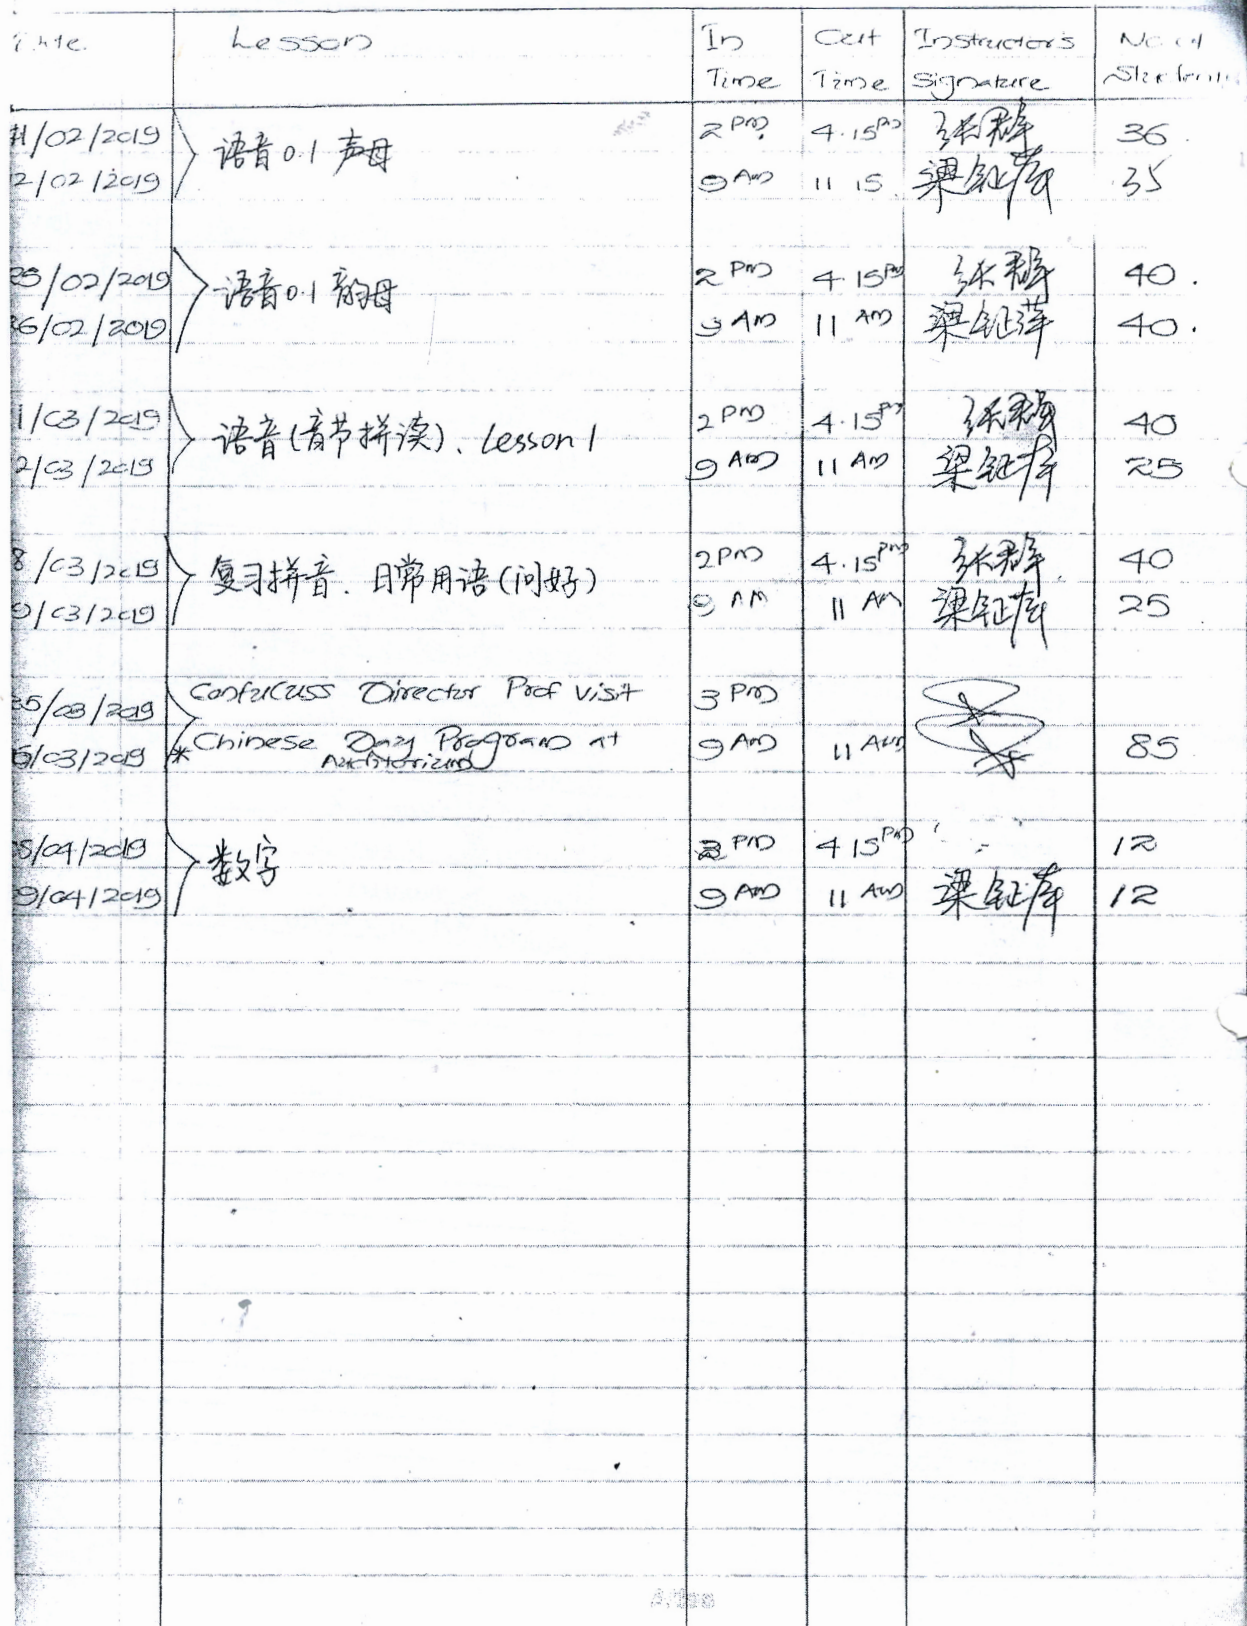 Lesson In Out Instructor's No. of
Time Time Signature
/02/2019 语音0.1 声母 2 PM 4.15 PM 张群 36
2/02/2019 9 AM 11 15 梁钲 35
25/02/2019 语音0.1 韵母 2 PM 4.15 PM 张群 40.
26/02/2019 9 AM 11 AM 梁钲 40.
1/03/2019 语音(音节拼读)、Lesson 1 2 PM 4.15 PM 张群 40
2/03/2019 9 AM 11 AM 梁钲 25
8/03/2019 复习拼音、日常用语(问好) 2 PM 4.15 PM 张群 40
9/03/2019 9 AM 11 AM 梁钲 25
5/03/2019 Confucuss Director Prof visit 3 PM
6/03/2019 * Chinese Day Program at 9 AM 11 AM 85
Auditorium
/04/2019 数字 PM 4 15 PM 12
9/04/2019 9 AM 11 AM 梁钲 12